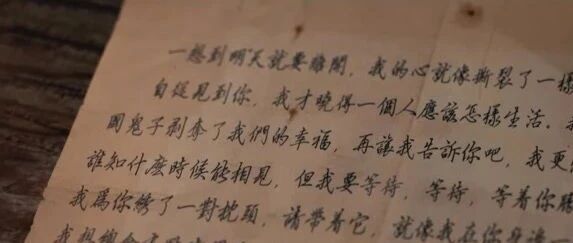 一想到明天就要離開，我的心就像撕裂了一樣
自從見到你，我才曉得一個人應該怎樣生活。
鬼子剥奪了我們的幸福，再讓我告訴你吧，我更
誰知什麽時候能相見，但我要等待，等待，等着你勝
我爲你綉了一對枕頭，請帶着它，就像我在你
我想